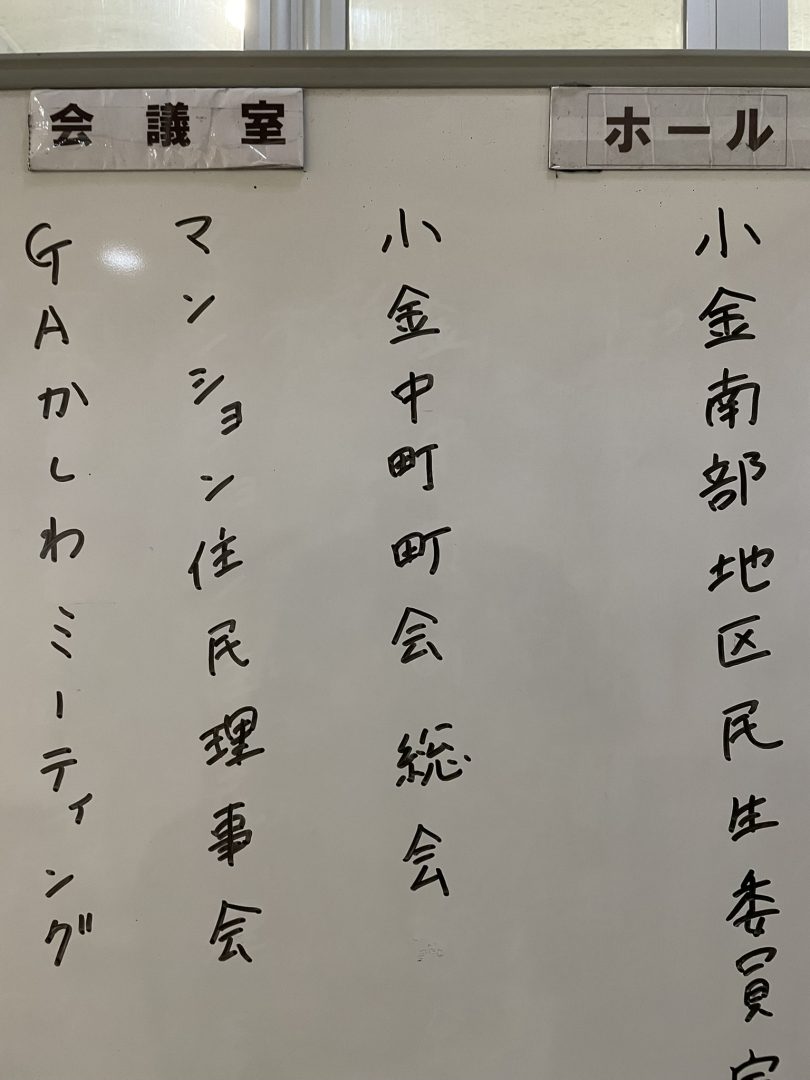 ホール
小金南部地区民生委員定
会議室
小金中町町会 総会
マンション住民理事会
GAかしわミーティング